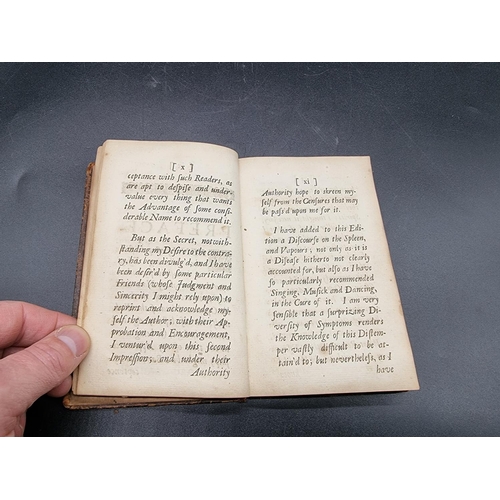 [ x ]
ceptance with such Readers, as
are apt to despise and under-
value every thing that wants
the Advantage of some consi-
derable Name to recommend it.
But as the Secret, notwith-
standing my Desire to the contra-
ry, has been divulg'd, and I have
been desir'd by some particular
Friends (whose Judgment and
Sincerity I might rely upon) to
reprint and acknowledge my-
self the Author; with their Ap-
probation and Encouragement,
I ventur'd upon this Second
Impression; and under their
Authority
[ xi ]
Authority hope to skreen my-
self from the Censures that may
be pass'd upon me for it.
I have added to this Edi-
tion a Discourse on the Spleen,
and Vapours; not only as it is
a Disease hitherto not clearly
accounted for, but also as I have
so particularly recommended
Singing, Musick and Dancing,
in the Cure of it. I am very
sensible that a surprizing Di-
versity of Symptoms renders
the Knowledge of this Distem-
per vastly difficult to be at-
tain'd to; but nevertheless, as I
have